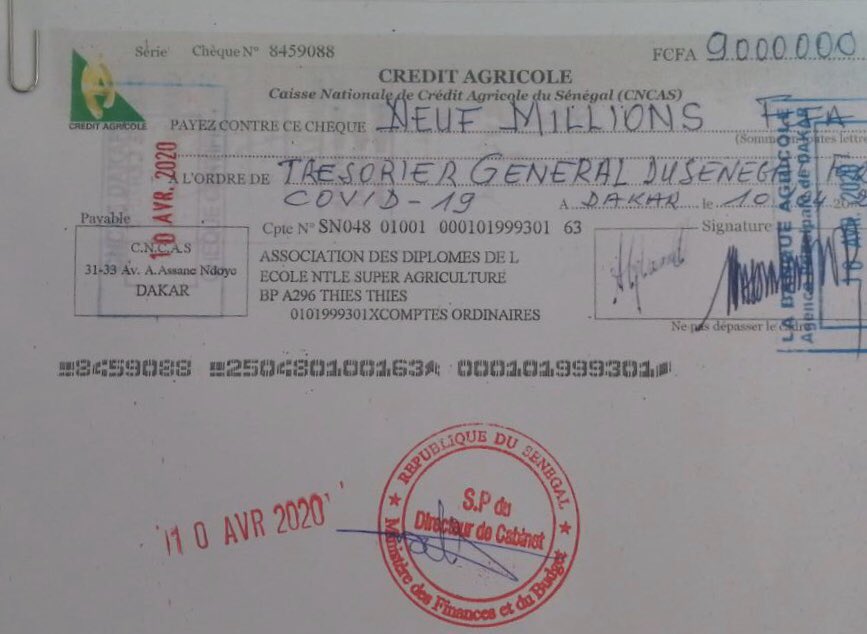 Série Chèque N° 8459088 FCFA 9000000
CREDIT AGRICOLE
Caisse Nationale de Crédit Agricole du Sénégal (CNCAS)
CREDIT AGRICOLE
PAYEZ CONTRE CE CHEQUE NEUF MILLIONS FCFA
A L'ORDRE DE TRESORIER GENERAL DU SENEGAL
COVID-19 A DAKAR le 10
Payable Cpte N° SN048 01001 000101999301 63 Signature
C.N.C.A.S
31-33 Av. A.Assane Ndoye
DAKAR
ASSOCIATION DES DIPLOMES DE L
ECOLE NTLE SUPER AGRICULTURE
BP A296 THIES THIES
0101999301XCOMPTES ORDINAIRES
Ne pas dépasser le cadre
10 AVR. 2020
LA BANQUE AGRICOLE
Agence Principale de DAKAR
8459088 250480100163 000101999301
10 AVR 2020
REPUBLIQUE DU SENEGAL
S.P du
Directeur de Cabinet
Ministère des Finances et du Budget